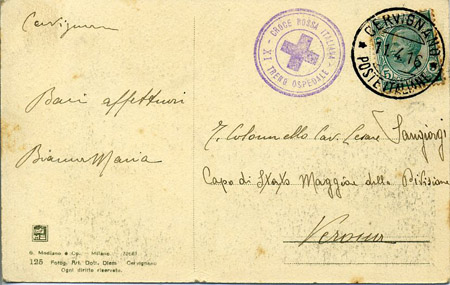 Cervignano
CROCE ROSSA ITALIANA
IX
TRENO OSPEDALE
CERVIGNANO
11.4.16
POSTE ITALIANE
Baci affettuosi
Bianca Maria
T. Colonnello Cav. Cesare Sangiorgi
Capo di Stato Maggiore della Divisione
Verona
G. Modiano e Co. - Milano
125 Fotog. Art. Dott. Diem Cervignano
Ogni diritto riservato.